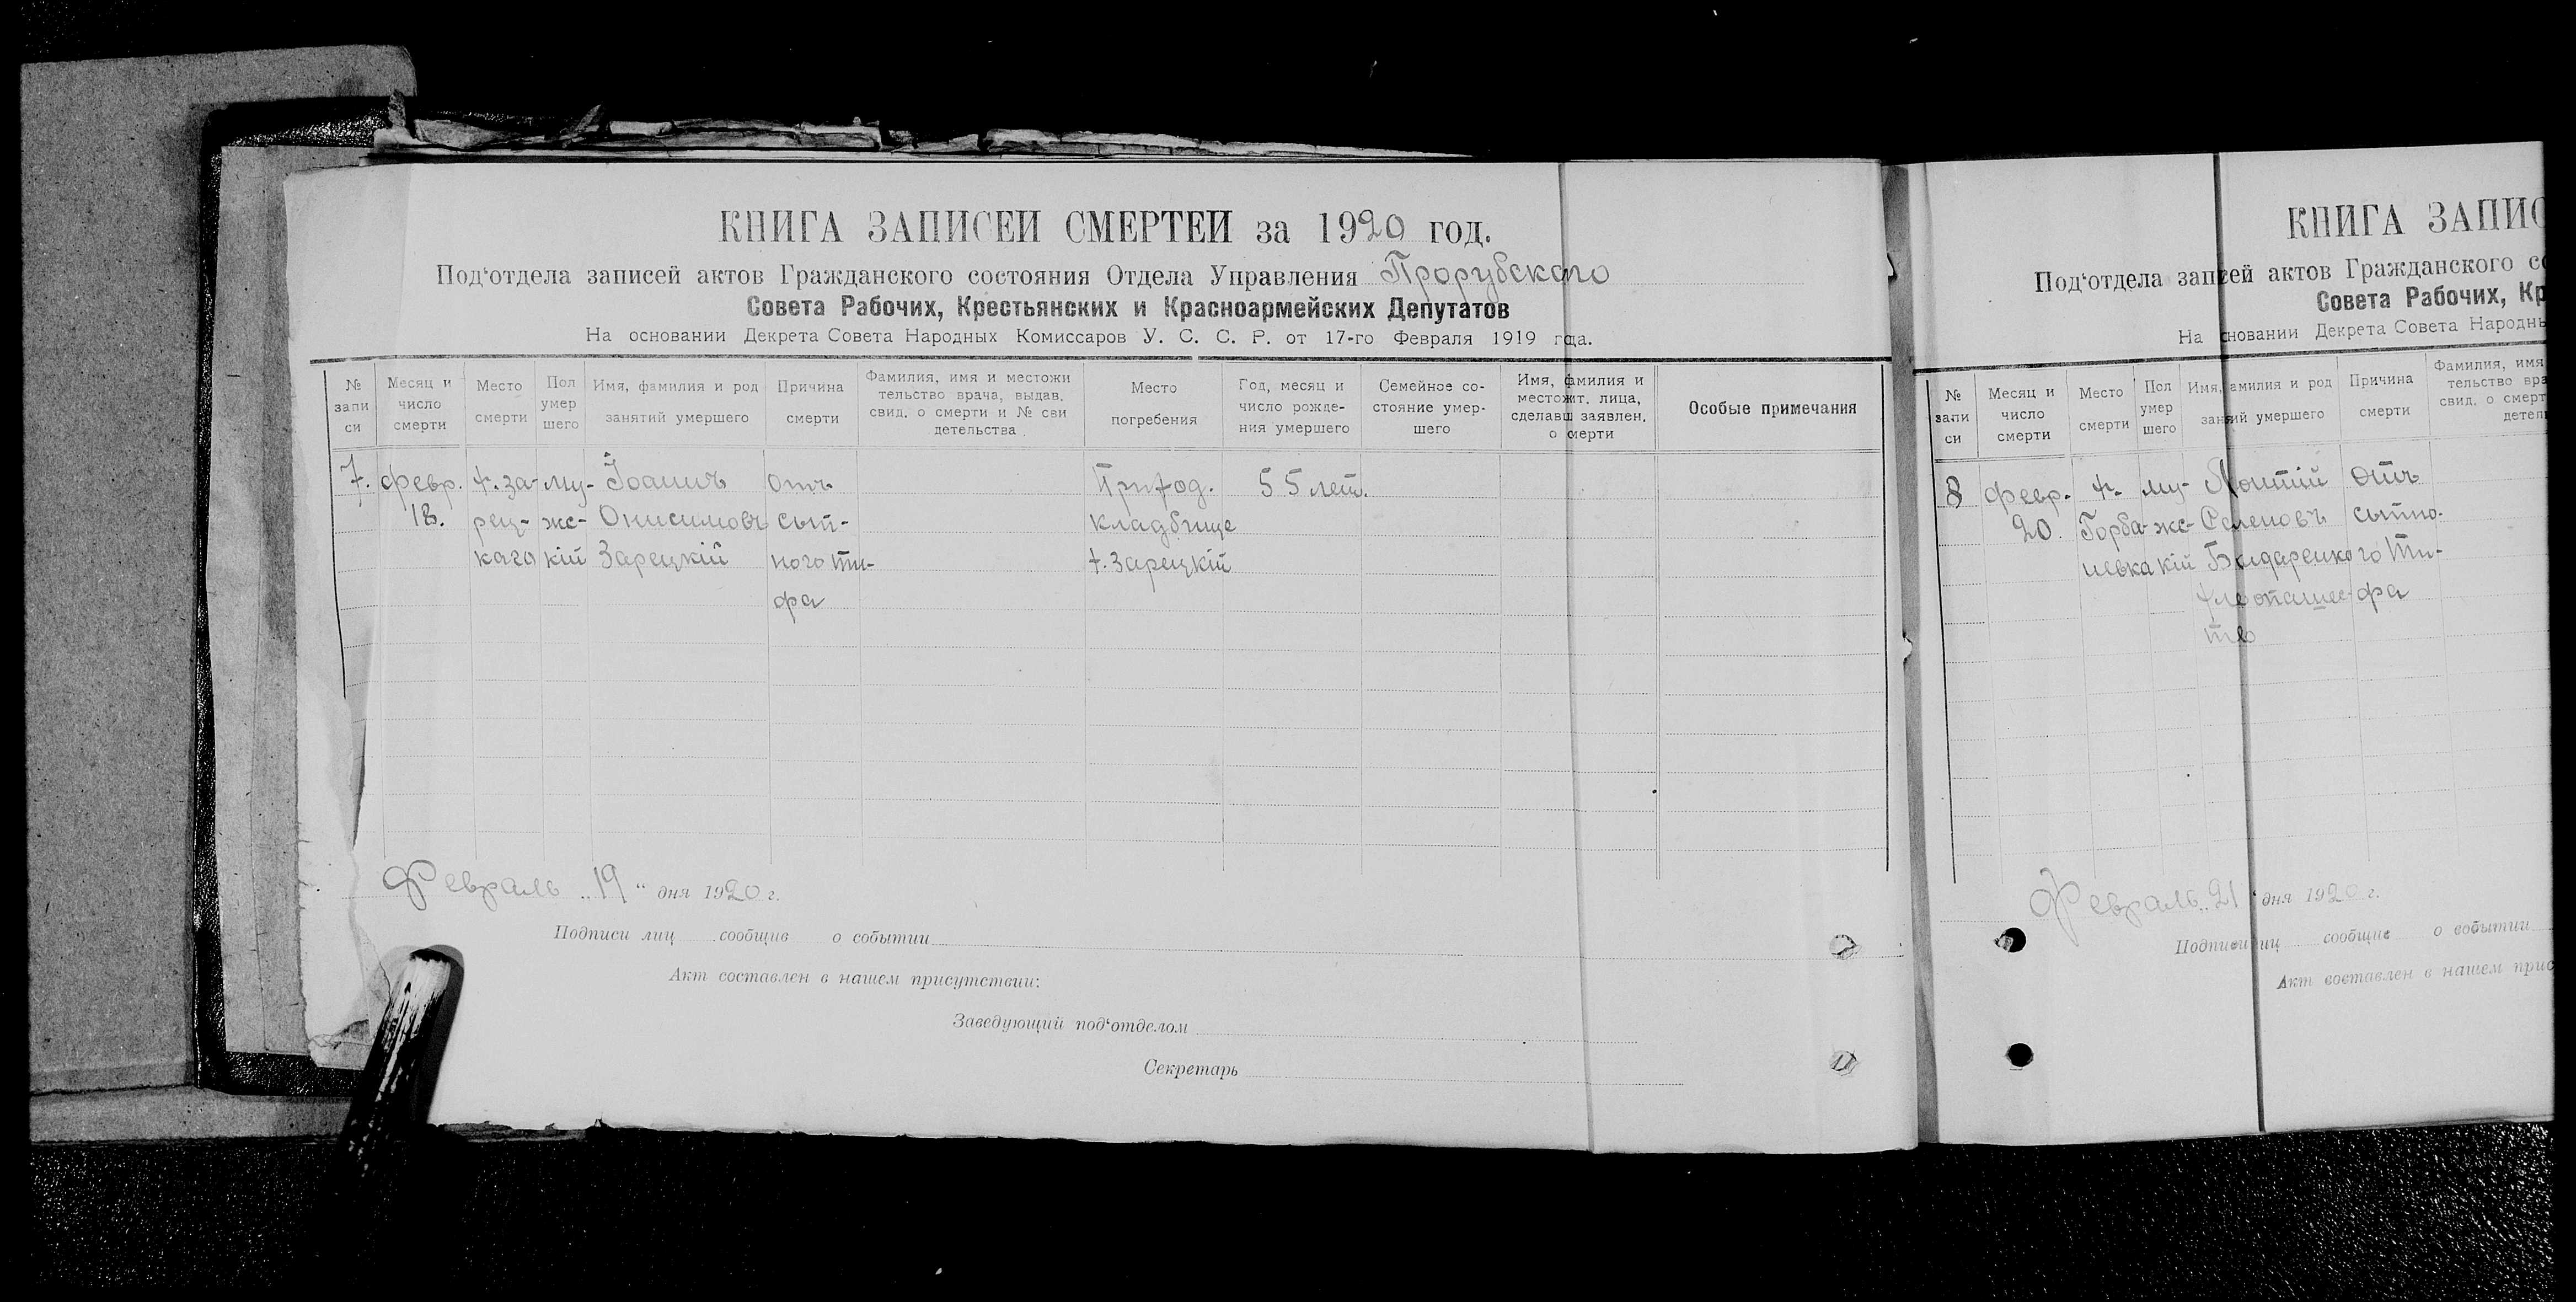 КНИГА ЗАПИСЕЙ СМЕРТЕЙ за 1920 год.
Под‘отдела записей актов Гражданского состояния Отдела Управления Прорубского
Совета Рабочих, Крестьянских и Красноармейских Депутатов
На основании Декрета Совета Народных Комиссаров У. С. С. Р. от 17-го Февраля 1919 года.
№ запи си
Месяц и число смерти
Место смерти
Пол умер шего
Имя, фамилия и род занятий умершего
Причина смерти
Фамилия, имя и местожи тельство врача, выдав. свид. о смерти и № сви детельства
Место погребения
Год, месяц и число рожде- ния умершего
Семейное со- стояние умер- шего
Имя, фамилия и местожит. лица, сделавш заявлен. о смерти
Особые примечания
7. февр. х. за- му- Іоаннъ отъ Приход. 55 лет.
18. рец- жс- Онисимовъ сып- кладбище
каго кій Зарецкій ного ти- х. Зарецкій
фа
Февраль „19“ дня 1920 г.
Подписи лиц сообщив о событии
Акт составлен в нашем присутствии:
Заведующий под‘отделом
Секретарь
КНИГА ЗАПИС
Под‘отдела записей актов Гражданского со
Совета Рабочих, Кр
На основании Декрета Совета Народны
№ запи си
Месяц и число смерти
Место смерти
Пол умер шего
Имя, фамилия и род занятий умершего
Причина смерти
Фамилия, имя тельство вра свид. о смерт детел
8 февр. х. му- отъ
20. Горба- жс- сыпно-
невка кій го ти-
фа
Февраль „21“ дня 1920 г.
Подписи лиц сообщив о событии
Акт составлен в нашем прис